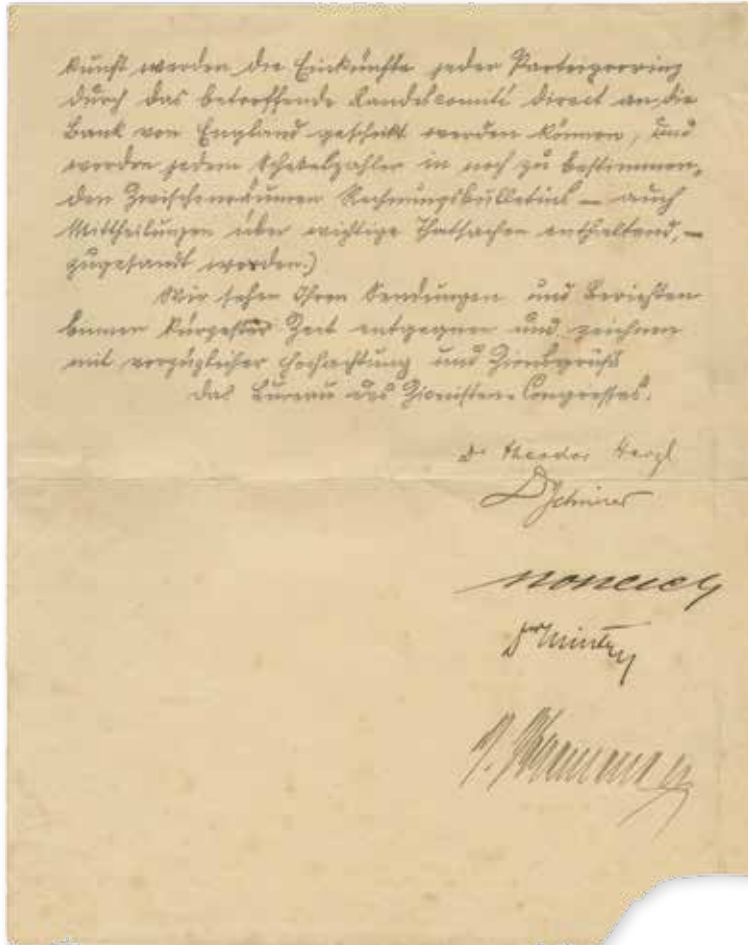 kunft werden die Einkünfte jeder Parteiprovinz
durch das betreffende Landescomité direct an die
Bank von England geschickt werden können, und
werden jedem Schekelzahler in noch zu bestimmen-
den Zwischenräumen Rechnungsbulletins – auch
Mittheilungen über wichtige Thatsachen enthaltend, –
zugesandt werden.)
Wir sehen Ihren Sendungen und Berichten
binnen kürzester Zeit entgegen und zeichnen
mit vorzüglicher Hochachtung und Zionsgruß
Das Bureau des Zionisten-Congresses.
Dr Theodor Herzl
Dr Schnirer
Dr Mintz